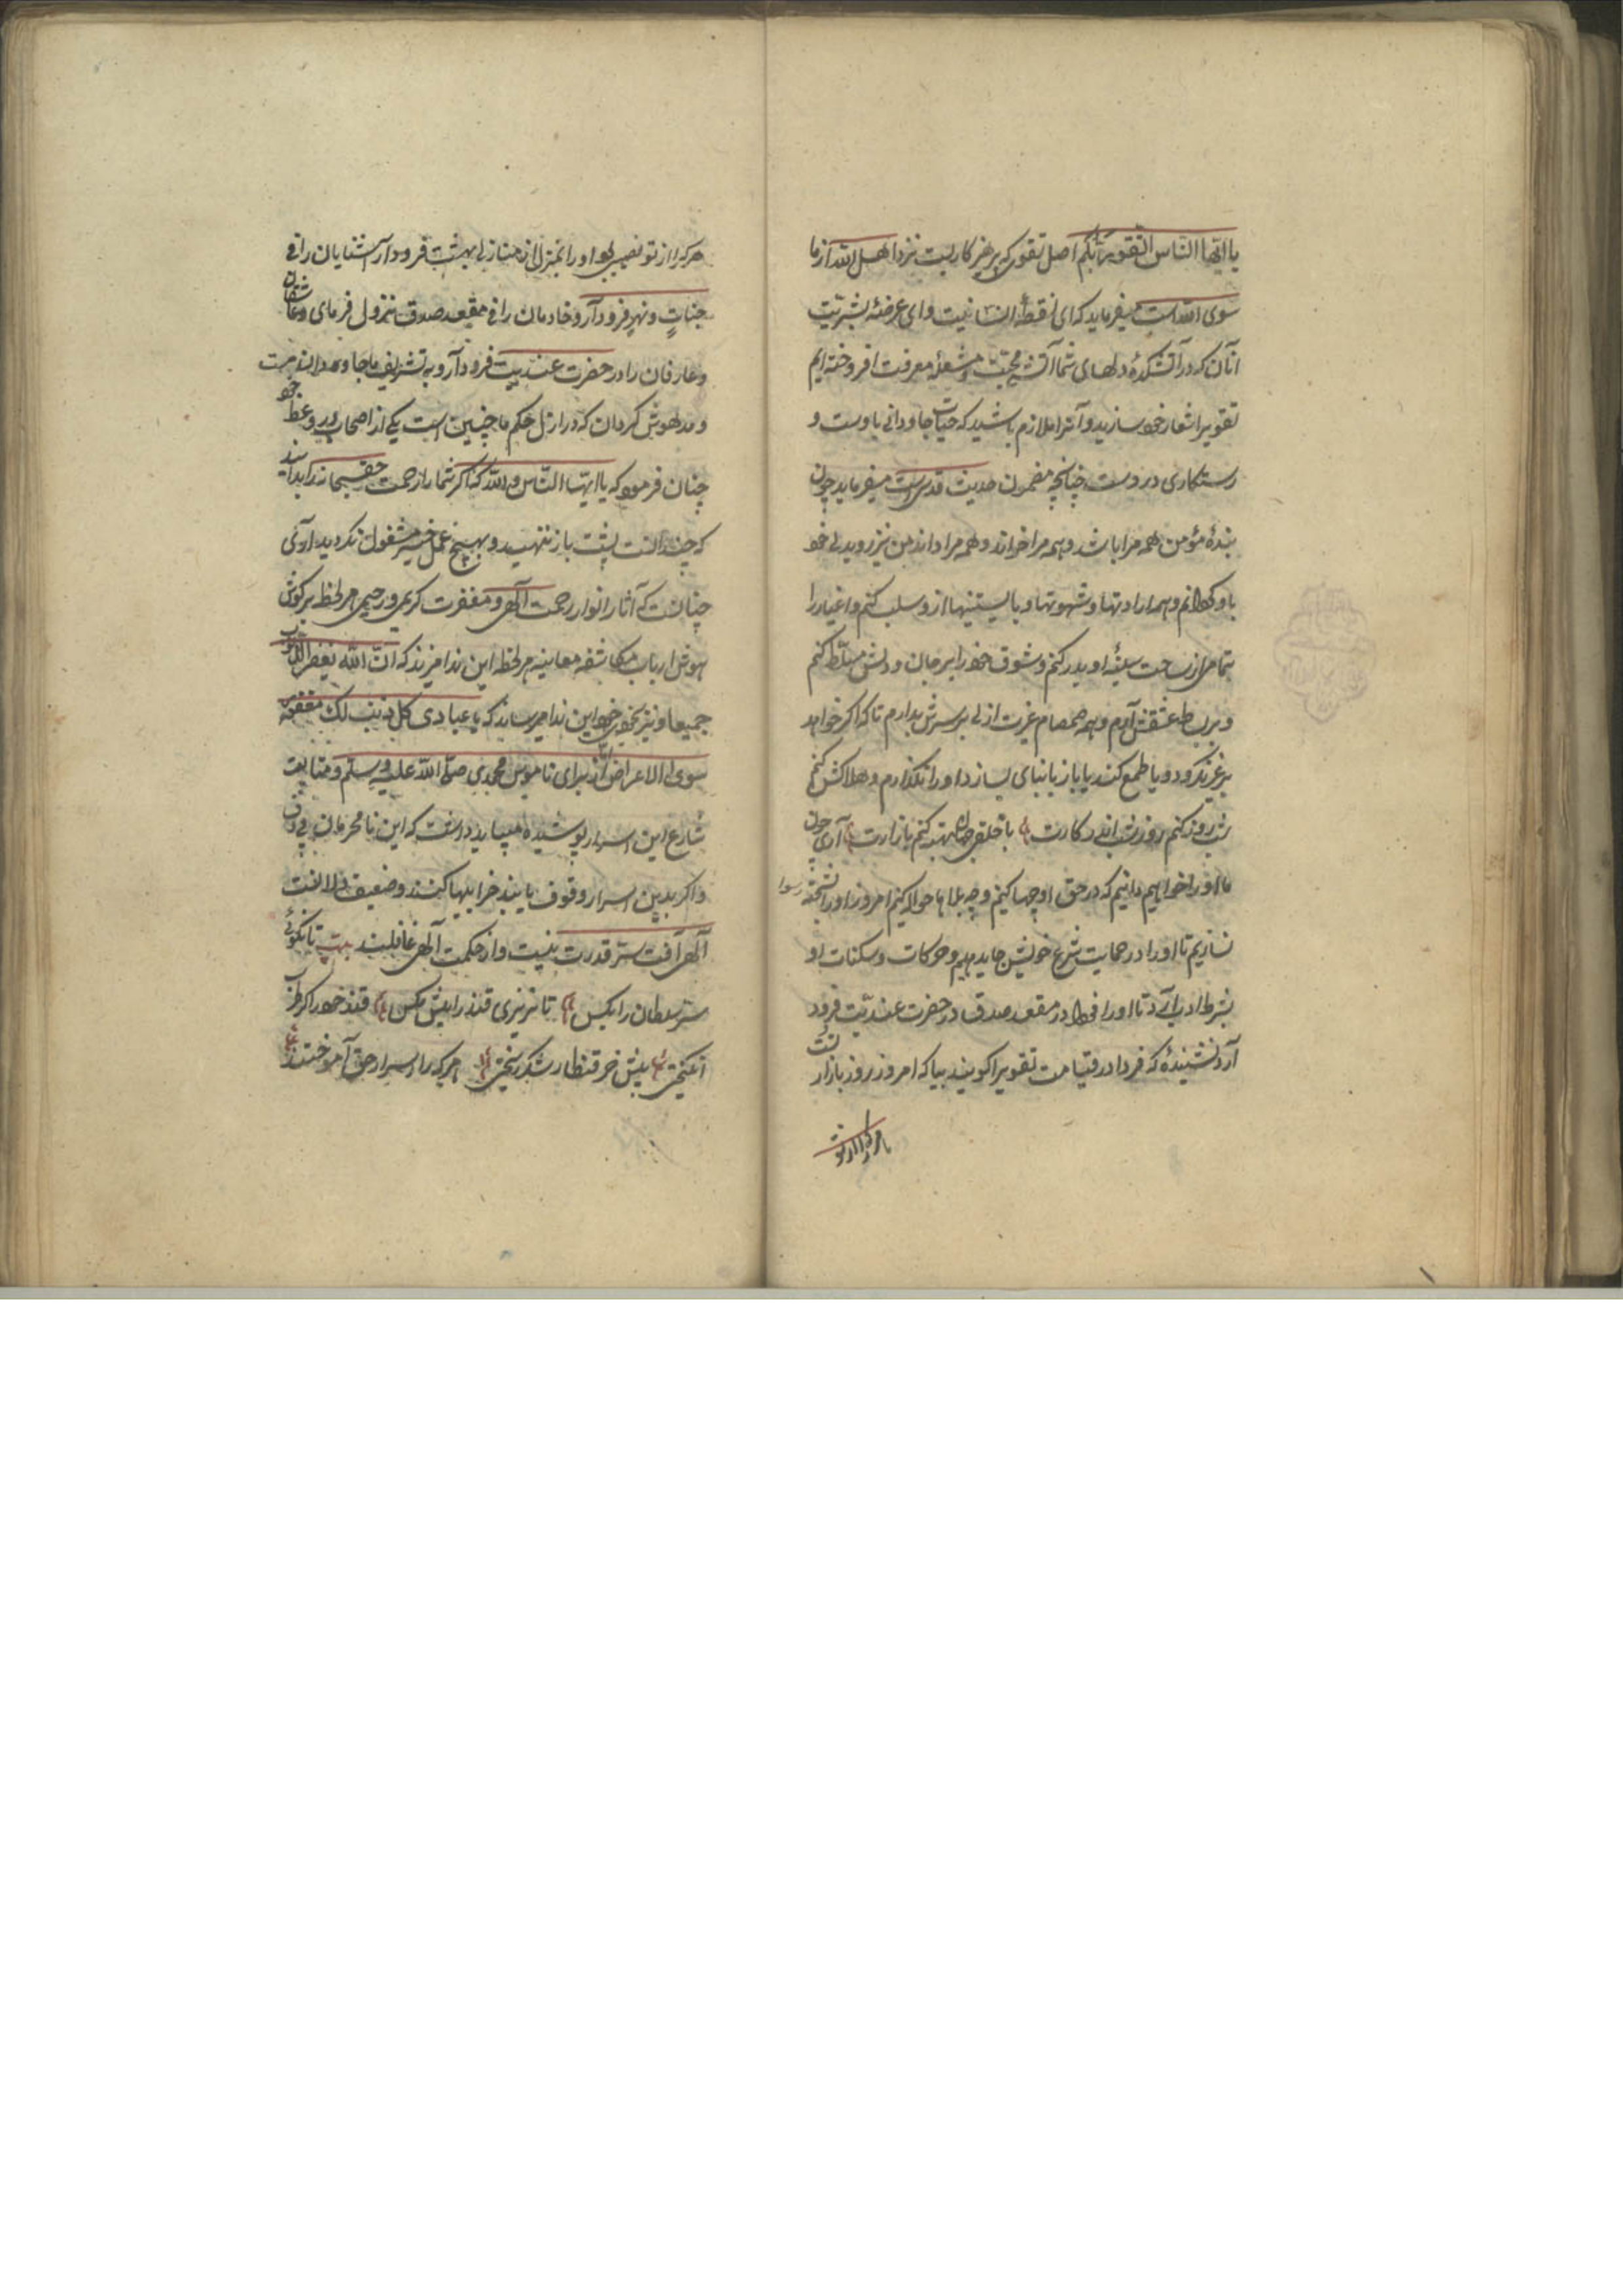 یا ایها الناس اتقوا ربکم اصل تقوی که پرهیز کاریست نزد اهل الله از ما
سوی الله است میفرماید که ای نقطهٔ انسانیت و ای عرضهٔ بشریّت
آنان که در آتشکدهٔ دلهای شما آتش محبّت و مشعلهٔ معرفت افروخته‌ایم
تقویرا شعار خود سازید و آنرا ملازم باشید که حیات جاودانی با اوست و
رستکاری دروست چنانچه مضمون حدیث قدسی است میفرماید چون
بندهٔ مؤمن همه مرا باشد و همه مرا خواند و همه مرا داند من نیز روید لی خود
باو کردانم و همه ارادتها و شهوتها و بایستینها ازو سلب کنم و اغیار را
بتمامی از ساحت سینهٔ او بدر کنم و شوق خود را بر جان و دلش مسلّط کنم
و بر بساط عشقش آرم و همه صمصام غیرت ازلی بر سرش بدارم تا که اکر خواهد
بغیر نکرد و یا طمع کند یا باز یا نیای بسازد او را نکذارم و هلاکش کنم
شب روز کنم روز شب اندر کارت با خلق جهان بهتر کنم بازارت آری چون
ما او را خواهیم دانیم که در حق او چها کنیم و چه بلاها حواله کنیم امروز او را شحنه رسوا
نسازیم تا او را در حمایت شرع خویش جای دهیم و حرکات و سکنات او
بشرط ادب آید تا او را فردا در مقعد صدق در حضرت عندیّت فرود
آرد نشنیدهٔ که فردا در قیامت تقویرا کویند بیا که امروز روز بازار تست
هر که را از تو
هر که را از تو نصیبی بود او را بمنزلی از منازل بهشت فرود آر آشنایان را فی
جناتٍ و نهرٍ فرود آر و خادمان را فی مقعد صدق نزول فرمای و عاشقان
و عارفان را در حضرت عندیّت فرود آر و به تشریف ما جاودان مست
و مدهوش کردان که در ازل حکم ما چنین است یکی از اصحاب در وعظ خود
چنان فرمود که یا ایها الناس والله که اکر شما را از رحمت حق سبحانه را بدانید
که چندانست پشت باز ننهید و بهیچ عمل خیر مشغول نکردید او آری
چنانست که آثار انوار رحمت الهی و مغفرت کریمی و رحیمی هر لحظه بر کوش
هوش ارباب مکاشفه معاینه هر لحظه این ندا میزند که انّ الله یغفر الذنوب
جمیعا و نیز بخودی خود این ندا میرساند که یا عبادی کل ذنب لک مغفور
سوی الاعراض امّا از برای ناموس محمدی صلّی الله علیه وسلم و متابعت
شارع این اسرار پوشیده میباید داشت که این نامحرمان بی ذوق
و اکر بدین اسرار وقوف یابند خرابیها کنند و ضعیف دلالنت
الهی آفت ستر قدرت بنیت و از حکمت الهی غافلیند بیت تا نکوئی
ستر سلطان را بکس تا نریزی قند را پیش مکس قند خود را کر طرب
انکیختی پیش خر قنطار شکر ریختی هر که را اسرار حق آموختند